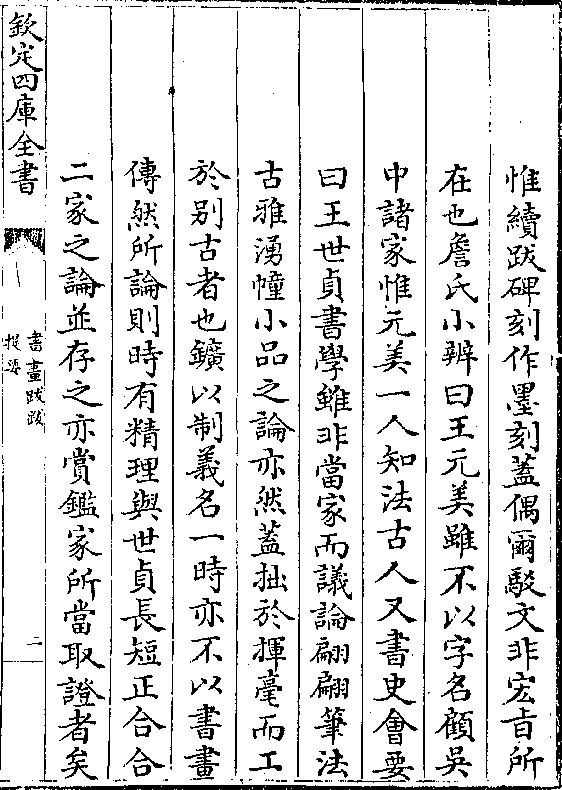 惟續跋碑刻作墨刻蓋偶爾駁文非宏㫖所
在也詹氏小辨曰王元美雖不以字名顧吳
中諸家惟元美一人知法古人又書史會要
曰王世貞書學雖非當家而議論翩翩筆法
古雅湧幢小品之論亦然蓋拙於揮毫而工
於别古者也鑛以制義名一時亦不以書畫
傳然所論則時有精理與世貞長短正合合
二家之論並存之亦賞鑑家所當取證者矣
欽定四庫全書
書畫跋跋
提要
二